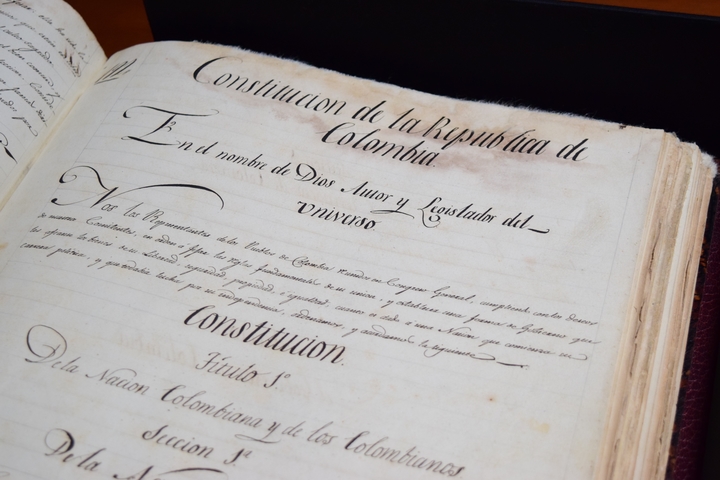 Constitucion de la Republica de
Colombia.
En el nombre de Dios Autor y Legislador del
Universo
Nos los Representantes de los Pueblos de Colombia reunidos en Congreso General, cumpliendo con los deseos
de nuestros Comitentes, en orden a fijar las reglas fundamentales de su union, y establecer una forma de Gobierno que
les afianze los bienes de su Libertad, seguridad, propiedad, e igualdad, cuanto es dado a una Nacion que comienza su
carrera politica, y que todavia lucha por su independencia, ordenamos, y acordamos la siguiente
Constitucion.
Titulo 1º
De la Nacion Colombiana y de los Colombianos
Seccion 1ª
De la